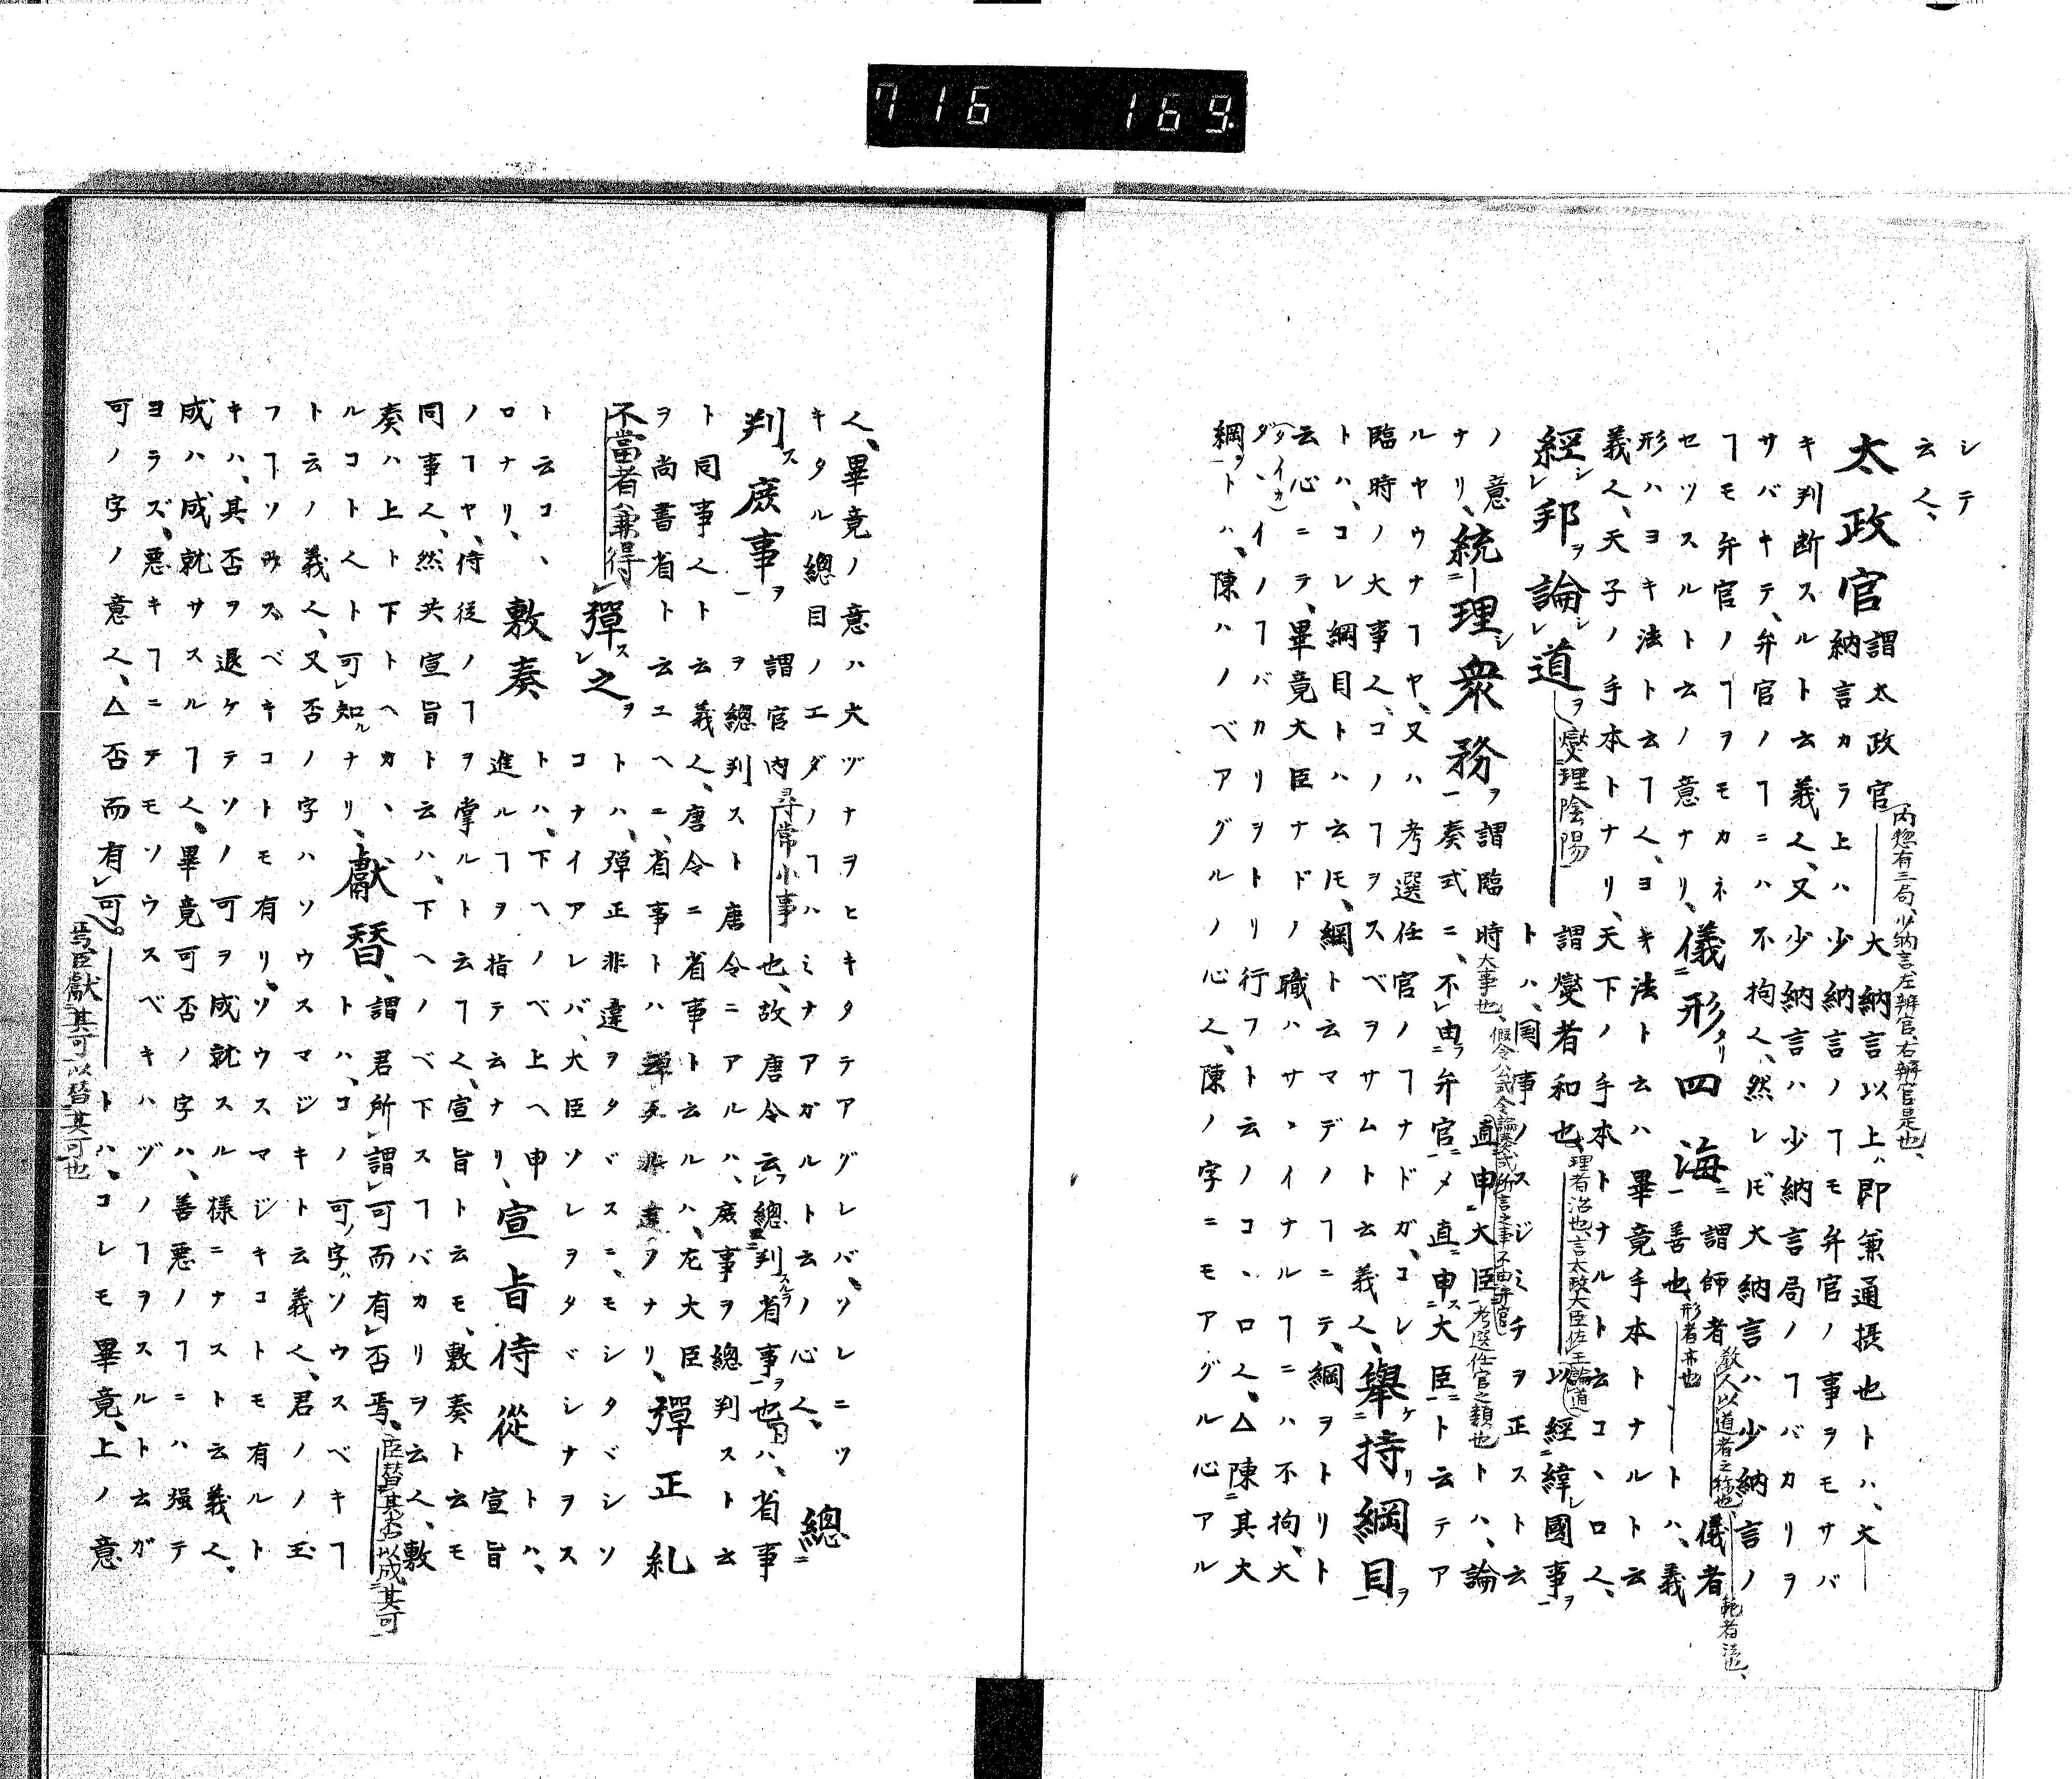 716 169.
シテ
云々、
太政官 謂太政官大納言以上、即兼通摂也トハ、大
内惣有三局、少納言左辨官右辨官是也、
納言カラ上ハ少納言ノヿモ弁官ノ事ヲモサバ
キ判断スルト云義人、又少納言ハ少納言局ノヿバカリヲ
サバキテ、弁官ノヿニハ不拘人、然レドモ大納言ハ少納言ノ
ヿモ弁官ノヿヲモカネ
セツスルト云ノ意ナリ、儀形四海 謂師者 儀者
教人以道者之称也 範者法也、
形ハヨキ法ト云ヿ人、ヨキ法ト云ハ畢竟手本トナルト云
善也 形者亦也 トハ、義
義人、天子ノ手本トナリ、天下ノ手本トナルト云コヽロ人、
経邦論道 燮理陰陽 謂燮者和也 理者治也、言太政大臣佐王論道 以経緯國事
トハ、国事ノスジミチヲ正スト云
ノ意
ナリ、統理衆務 謂臨時 大事也、假令公式令論奏式所言之事不由弁官 直申大臣 考選任官之類也 トハ、論
奏式ニ、不由弁官ニメ直申大臣ト云テア
ルヤウナヿヤ、又ハ考選任官ノヿナドガ、コレ
臨時ノ大事人、コノヿヲスベヲサムト云義人、舉持綱目
トハ、コレ綱目トハ云𪜈、綱ト云マデノヿニテ、綱ヲトリト
云心ニヲ、畢竟大臣ナドノ職ハサヽイナルヿニハ不拘、大
ダヽイノヿバカリヲトリ行フト云ノコヽロ人、△陳其大
綱ヲトハ、陳ハノベアグルノ心人、陳ノ字ニモアグル心アル
人、畢竟ノ意ハ大ヅナヲヒキタテアグレバ、ソレニツ
キタル總目ノエダノヿハミナアガルト云ノ心人、總
判庶事 謂官内尋常小事也、故唐令云總判省事也トハ、省事
ヲ總判スト唐令ニアルハ、庶事ヲ總判スト云
ト同事人ト云義人、唐令ニ省事ト云ルハ、左大臣
ヲ尚書省ト云ユヘニ、省事トハ彈正非違ヲナリ、彈正糺
不當者兼得彈之 トハ、彈正非違ヲタヾスニ、モシタヾシソ
コナイアレバ、大臣ソレヲタヾシナヲス
ト云コヽ 敷奏 トハ、下ヘノベ上ヘ申
ロナリ、 進ルヿヲ指テ云ナリ、宣旨侍從 宣旨トハ、
ノヿヤ、侍從ノヿヲ掌ルト云ヿ人、宣旨ト云モ、敷奏ト云モ
同事人、然共宣旨ト云ハ、下ヘノベ下スヿバカリヲ云人、敷
奏ハ上ト下トヘカヽ
ルコト人ト可知ナリ、獻替、謂君所謂可而有否焉、臣替其否以成其可
トハ、コノ可ノ字ハソウスベキヿ
ト云ノ義人、又否ノ字ハソウスマジキト云義人、君ノノ玉
フヿソウスベキコトモ有リ、ソウスマジキコトモ有ルト
キハ、其否ヲ退ケテソノ可ヲ成就スル様ニナスト云義人、
成ハ成就サスルヿ人、畢竟可否ノ字ハ、善悪ノヿニハ强テ
ヨラズ、悪キヿニテモソウスベキハヅノヿヲスルト云ガ
可ノ字ノ意人、△否而有可 トハ、コレモ畢竟、上ノ意
焉、臣獻其可以替其可也